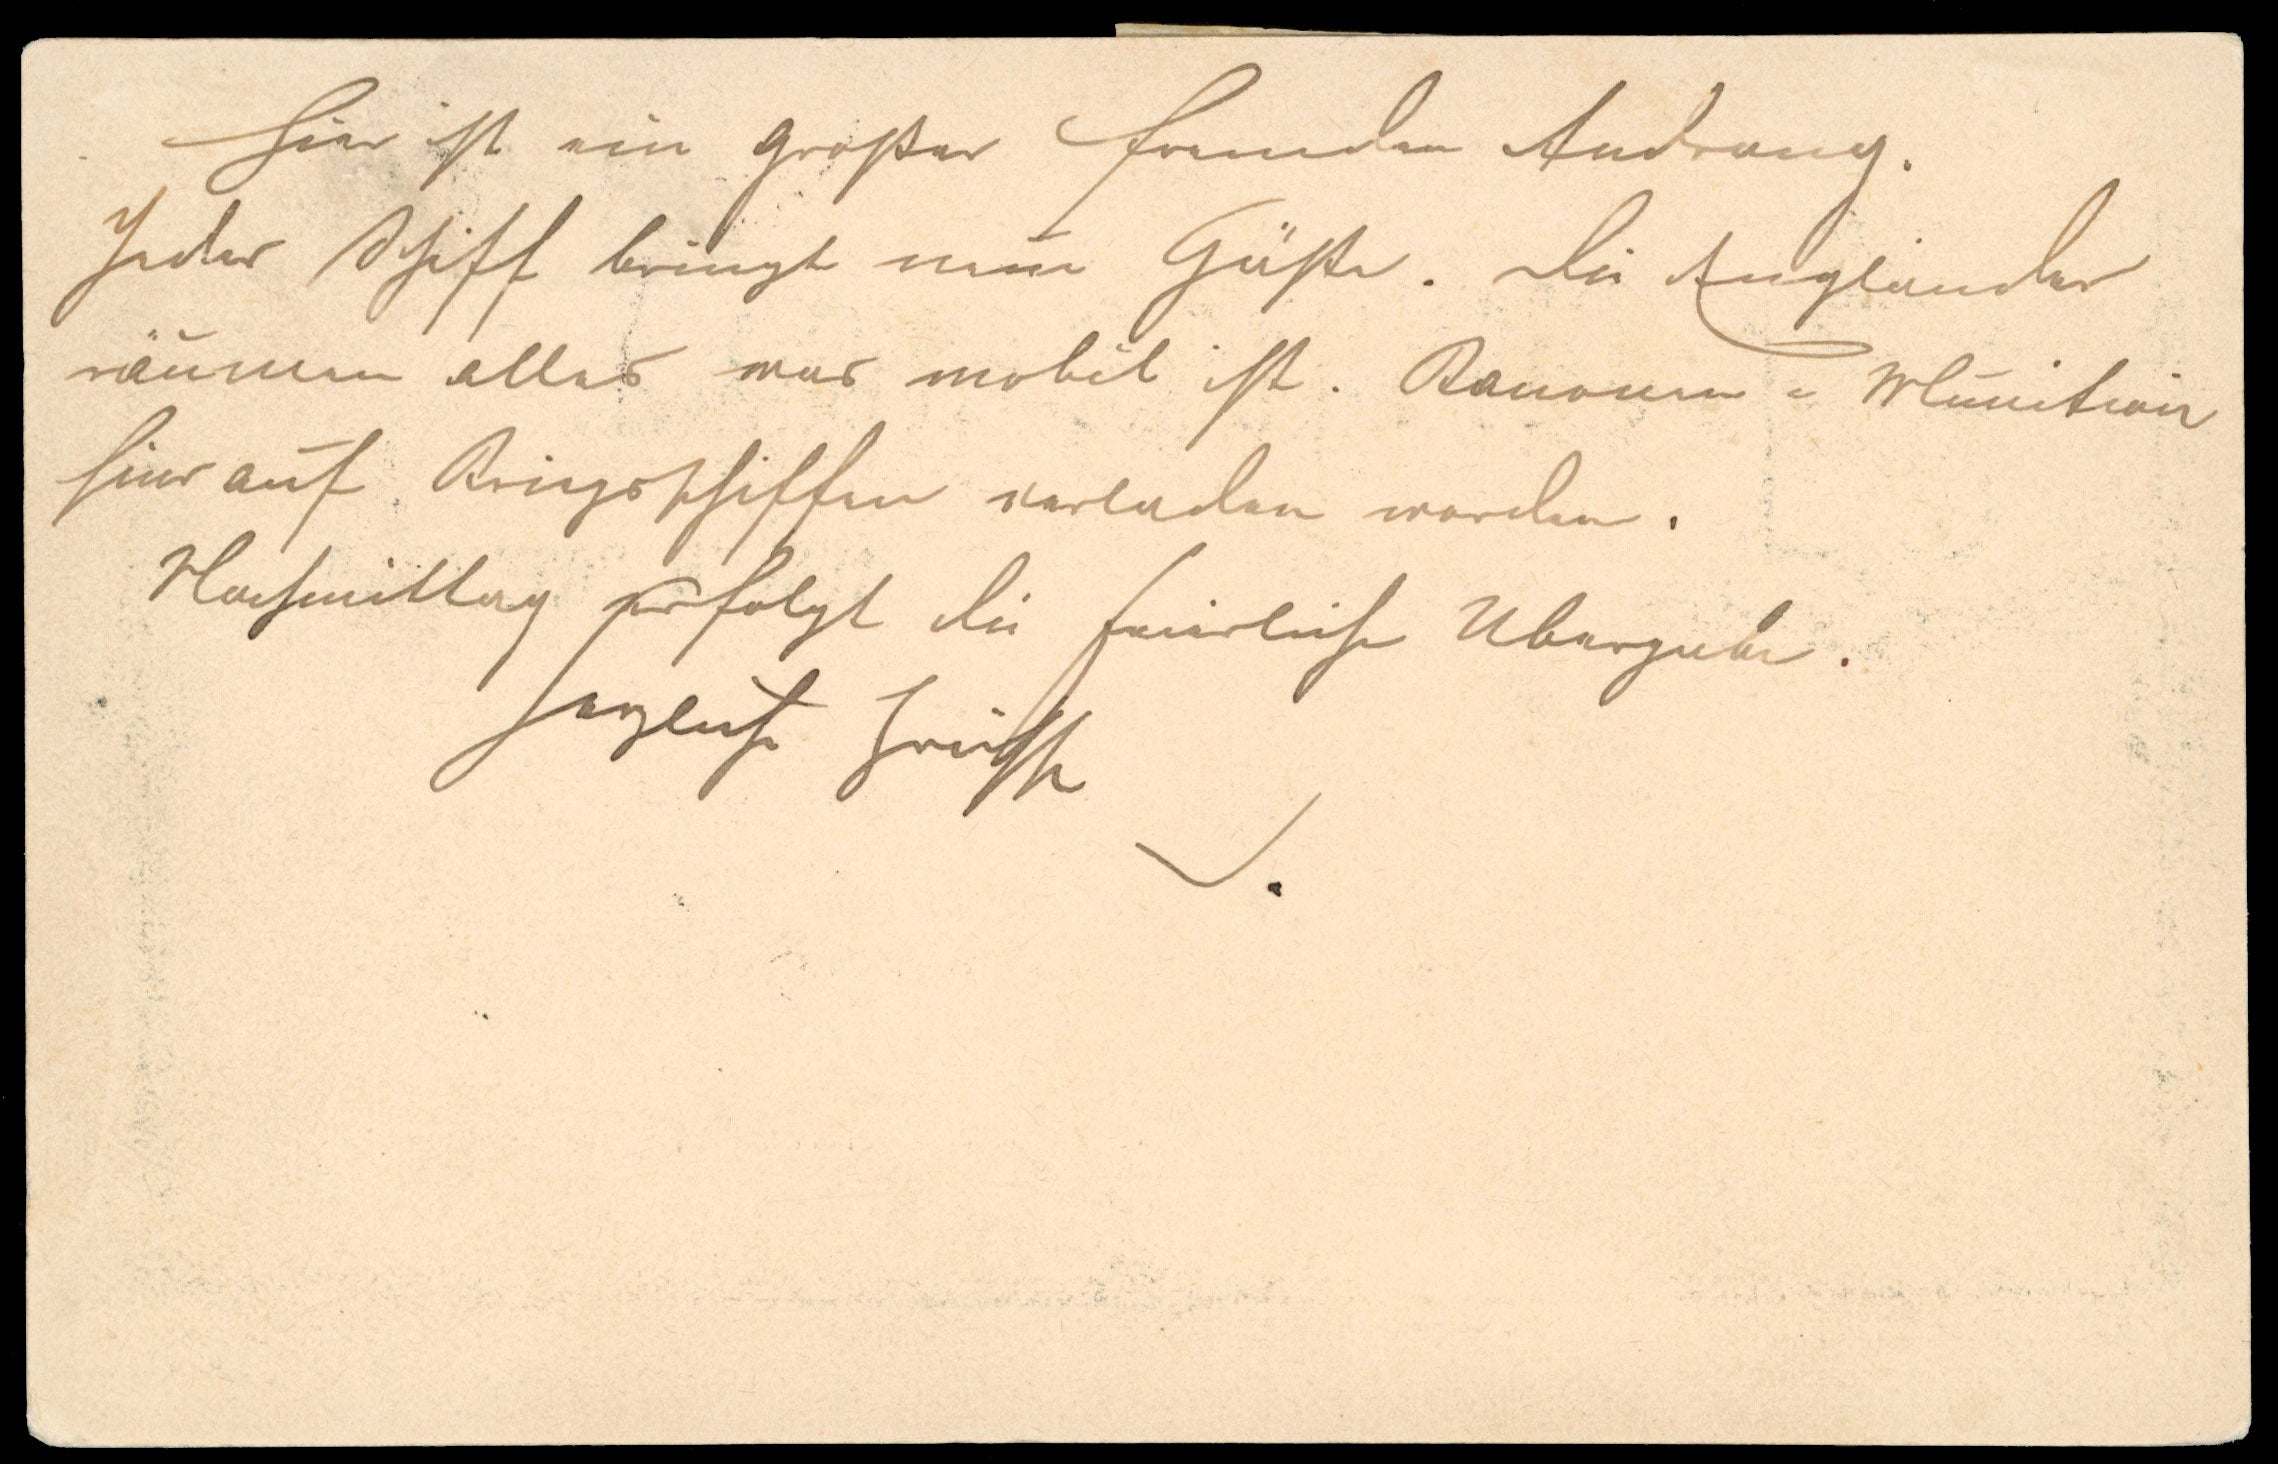 Hier ist ein großer Fremden Andrang.
Jeder Schiff bringt neue Gäste. Die Engländer
räumen alles was mobil ist. Kanonen u Munition
hier auf Kriegsschiffen verladen worden.
Nachmittag erfolgt die feierliche Übergabe.
Herzliche Grüsse